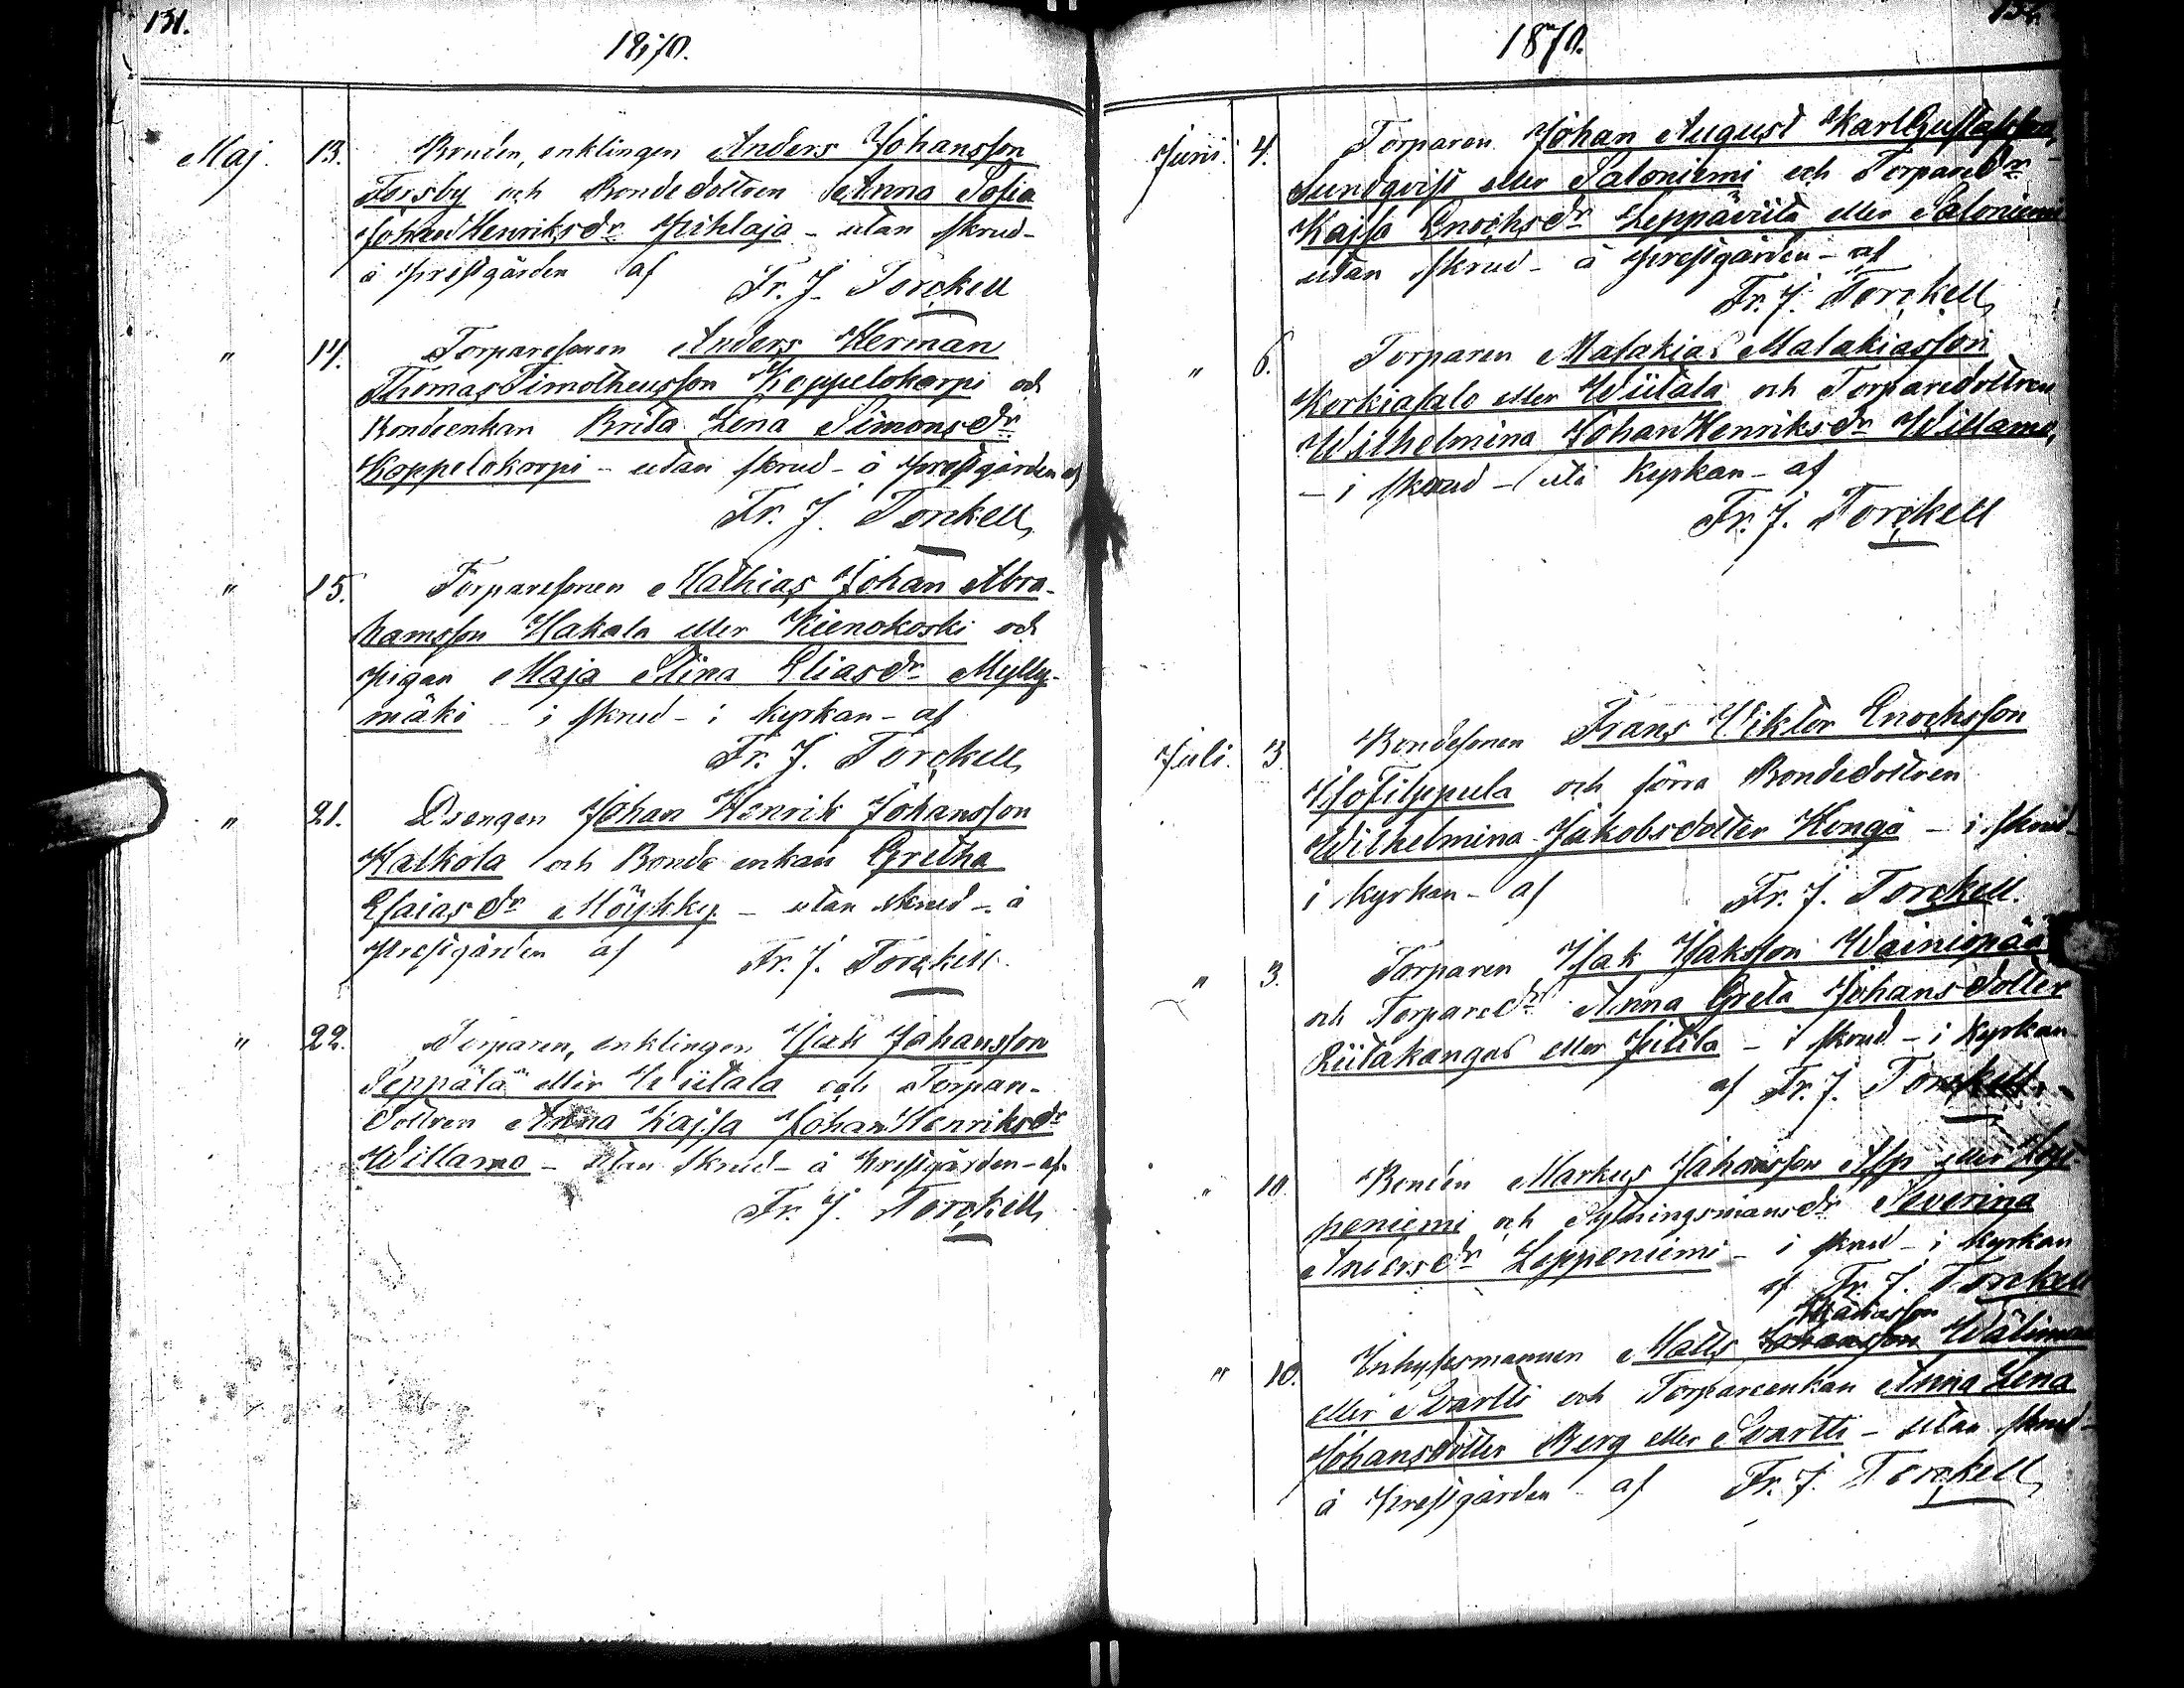 131.
1870.
Maj. 13. Bonden, enklingen Anders Johansson
Forsby och Bondedottren Anna Sofia
JohanHenriksdr Pihlaja - utan skrud -
å Prestgården af Fr. J. Torckell
" 14. Torparesonen Anders Herman
ThomasTimotheusson Koppelokorpi och
Bondeenkan Brita Lena Simonsdr
Koppelokorpi - utan skrud - å Prestgården af
Fr. J. Torckell
" 15. Torparesonen Mathias Johan Abra-
hamsson Hakala eller Kienokoski och
Pigan Maja Stina Eliasdr Mylly-
mäki - i skrud - i kyrkan - af
Fr. J. Torckell
" 21. Drengen Johan Henrik Johansson
Halkola och Bonde enkan Gretha
Esaiasdr Möykky - utan skrud - å
Prestgården af Fr. J. Torckell.
" 22. Torparen, enklingen Isak Johansson
Seppälä eller Wiitala och Torpare-
dottren Anna Kajsa JohanHenriksdr
Willamo - utan skrud - å Prestgården - af
Fr. J. Torckell
1870.
Juni. 4. Torparen Johan August KarlGustafsson
Sundqvist eller Saloniemi och Torparedr
Kajsa Enochsdr Leppäviita eller Saloniemi
utan skrud - å Prestgården - af
Fr. J. Torckell
" 6. Torparen Malakias Malakiasson
Korkiasalo eller Wiitala och Torparedottren
Wilhelmina JohanHenriksdr Willamo,
- i skrud - uti kyrkan - af
Fr. J. Torckell
Juli. 3. Bondesonen Frans Viktor Enochsson
IsoFilppula och förra Bondedottren
Wilhelmina Jakobsdotter Hongä - i skrud -
i kyrkan - af Fr. J. Torckell.
" 3. Torparen Isak Isaksson Wainiopää
och Torparedr Anna Greta Johansdotter
Riitakangas eller - i skrud - i kyrkan -
af Fr. J. Torckell.
" 10. Bonden Markus Johansson Asp eller Lep-
peniemi och Sytningsmansdr Severina
Andersdr Leppeniemi - i skrud - i kyrkan
af Fr. J. Torckell
" 10. Inhysesmannen Matts Wälimaa
eller Svartti och Torpareenkan Anna Lena
Johansdotter Berg eller Svartti - utan skrud -
å Prestgården - af Fr. J. Torckell